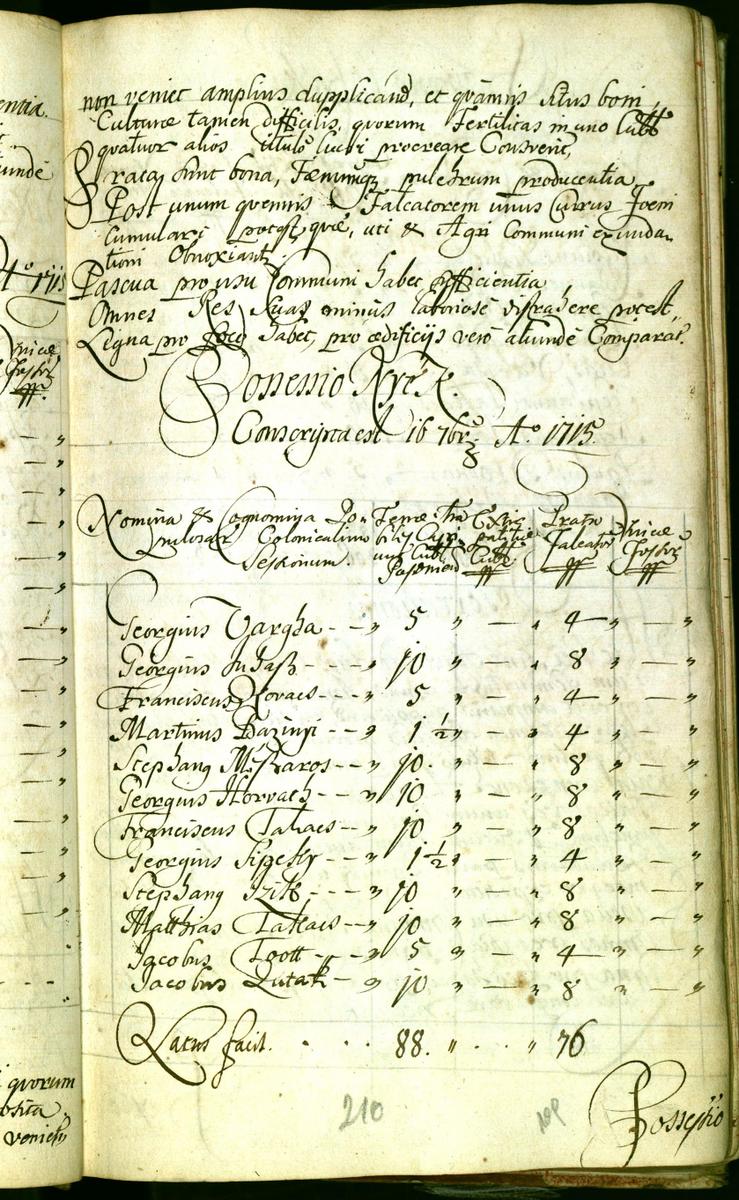 non veniet amplius dupplicand, et quamvis situs boni,
Culturæ tamen difficilis, quorum Fertilitas in uno Cubb
quatuor alios titulo lucri procreare Consvevit,
Prata sunt bona, Fænumq pulchrum producentia
Post unum quemvis Falcatorem unus Currus Foeni
Cumulari potest, quæ, uti & Agri Communi exunda-
tioni Obnoxiant
Pascua pro usu Communi habet sufficientia
Omnes Res Suas ominus laboriose distrahere potest,
Ligna pro foco habet, pro ædificijs vero aliunde Comparat.
Possessio Nyék.
Conscripta est 16 7br A° 1715.
Nomina & Cognomina Po-
pulorum Colonicalium
Sessionum.
Terræ
Cubb
Posonien
Extir
patitiæ
Cubb
Prata
Falcator
Vineæ
Fossor
Georgius Vargha - - „ 5 „ — „ 4 „ — „
Georgius Juhaß - - - „ 10 „ — „ 8 „ — „
Franciscus Kovacs - - - „ 5 „ — „ 4 „ — „
Martinus Bazinyi - - „ 1 ½ „ — „ 4 „ — „
Stephang Mißaros - - „ 10 „ — „ 8 „ — „
Georgius Horvath - - „ 10 „ — „ 8 „ — „
Franciscus Takacs - - „ 10 „ — „ 8 „ — „
Georgius - - „ 1 ½ „ — „ 4 „ — „
Stephang - - - „ 10 „ — „ 8 „ — „
Matthias Takacs - - „ 10 „ — „ 8 „ — „
Jacobus Toott - - „ 5 „ — „ 4 „ — „
Jacobus - „ 10 „ — „ 8 „ — „
Latus facit. . . . 88. „ . . „ 76
210
Possessio